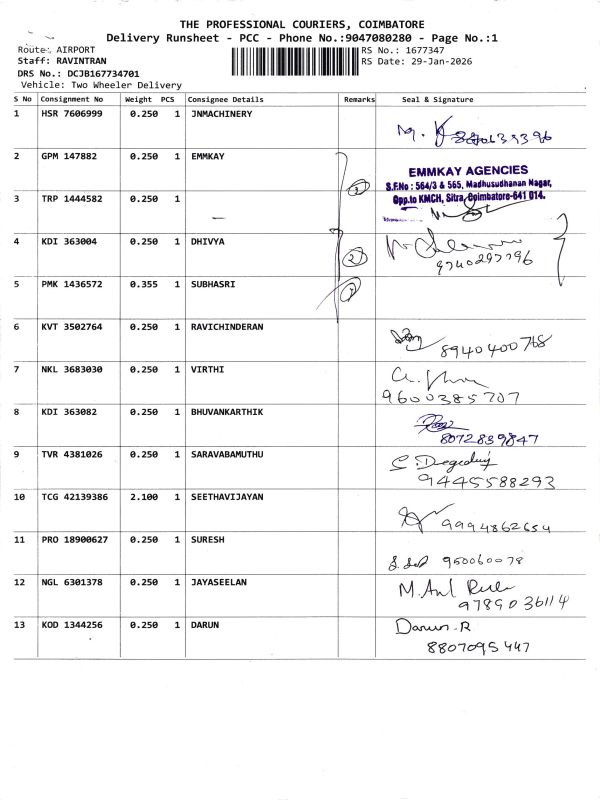 THE PROFESSIONAL COURIERS, COIMBATORE
Delivery Runsheet - PCC - Phone No.:9047080280 - Page No.:1
Route: AIRPORT RS No.: 1677347
Staff: RAVINTRAN RS Date: 29-Jan-2026
DRS No.: DCJB167734701
Vehicle: Two Wheeler Delivery
S No Consignment No Weight PCS Consignee Details Remarks Seal & Signature
1 HSR 7606999 0.250 1 JNMACHINERY
2 GPM 147882 0.250 1 EMMKAY
EMMKAY AGENCIES
S.F.No : 564/3 & 565, Madhusudhanan Nagar,
Opp.to KMCH, Sitra, Coimbatore-641 014.
3 TRP 1444582 0.250 1
4 KDI 363004 0.250 1 DHIVYA
2
9740297796
5 PMK 1436572 0.355 1 SUBHASRI
6 KVT 3502764 0.250 1 RAVICHINDERAN
8940400768
7 NKL 3683030 0.250 1 VIRTHI
9600385707
8 KDI 363082 0.250 1 BHUVANKARTHIK
8072839847
9 TVR 4381026 0.250 1 SARAVABAMUTHU
9445588293
10 TCG 42139386 2.100 1 SEETHAVIJAYAN
9994862654
11 PRO 18900627 0.250 1 SURESH
950060078
12 NGL 6301378 0.250 1 JAYASEELAN
9789036114
13 KOD 1344256 0.250 1 DARUN
Darun.R
8807095447